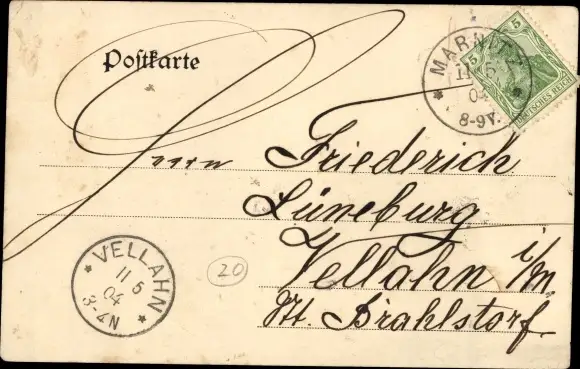 Postkarte
5 5
DEUTSCHES REICH
* MARNITZ *
11 5
04
8-9V.
Herrn Friederich
Lüneburg
Vellahn i/m.
St. Brahlstorf.
* VELLAHN *
11 5
04
3-4N
20